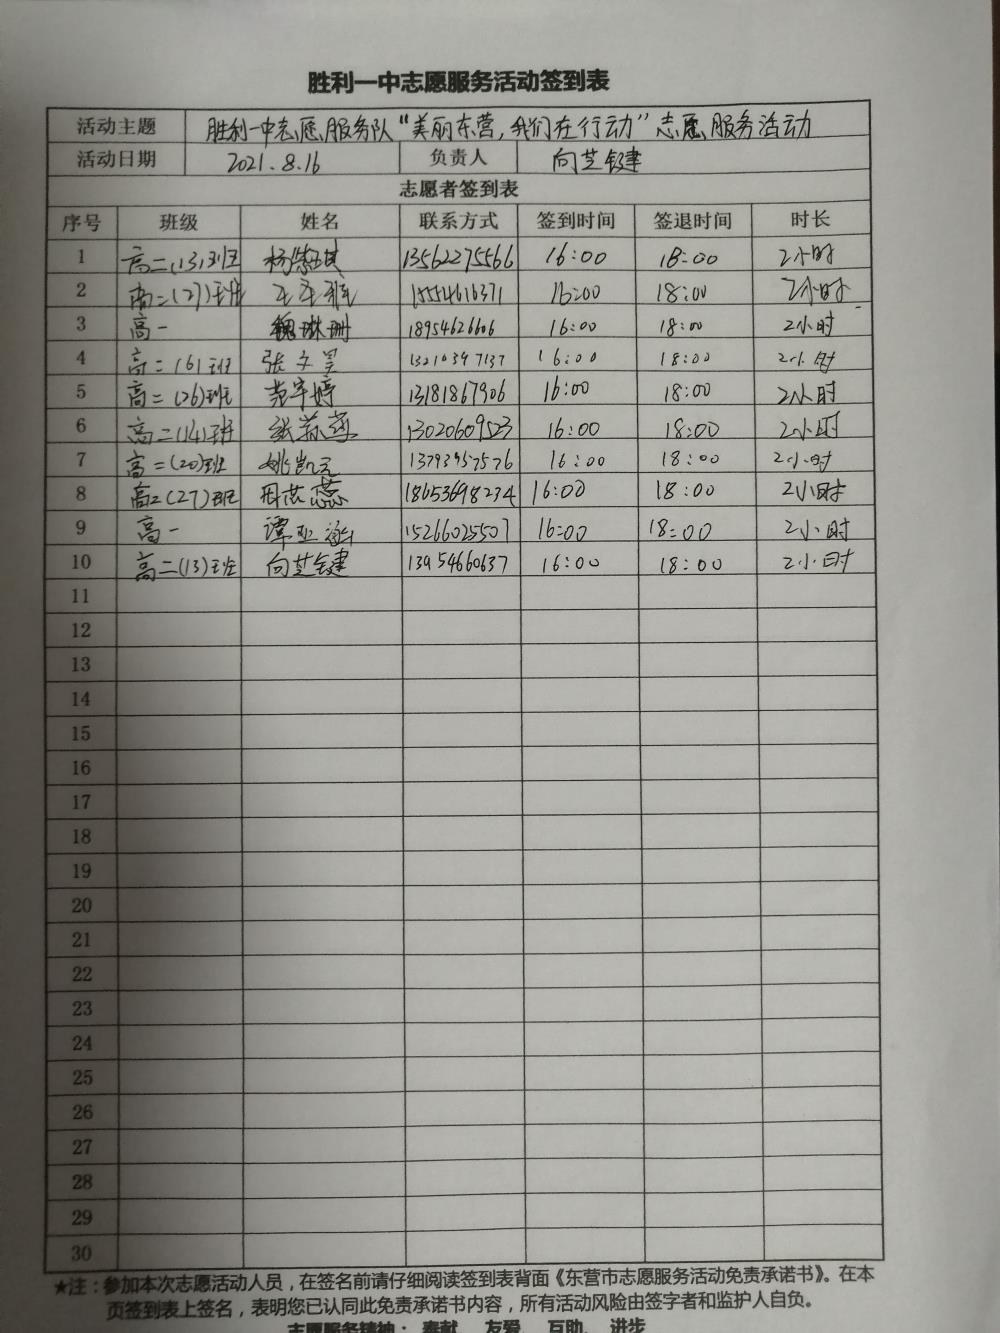 胜利一中志愿服务活动签到表
活动主题 胜利一中志愿服务队“美丽东营，我们在行动”志愿服务活动
活动日期 2021.8.16 负责人 向芝键
志愿者签到表
序号 班级 姓名 联系方式 签到时间 签退时间 时长
1 高二(13)班 杨紫琪 13562275566 16:00 18:00 2小时
2 高二(27)班 15554616371 16:00 18:00 2小时
3 高一 魏琳珊 18954626606 16:00 18:00 2小时
4 高二(6)班 张文昊 13210347137 16:00 18:00 2小时
5 高二(26)班 范宇婷 13181867906 16:00 18:00 2小时
6 高二(14)班 13020609523 16:00 18:00 2小时
7 高二(20)班 姚凯元 13793957576 16:00 18:00 2小时
8 高2(27)班 18653698234 16:00 18:00 2小时
9 高一 15266025507 16:00 18:00 2小时
10 高二(13)班 向芝键 13954660637 16:00 18:00 2小时
11
12
13
14
15
16
17
18
19
20
21
22
23
24
25
26
27
28
29
30
★注：参加本次志愿活动人员，在签名前请仔细阅读签到表背面《东营市志愿服务活动免责承诺书》。在本
页签到表上签名，表明您已认同此免责承诺书内容，所有活动风险由签字者和监护人自负。
志愿服务精神：奉献、友爱、互助、进步